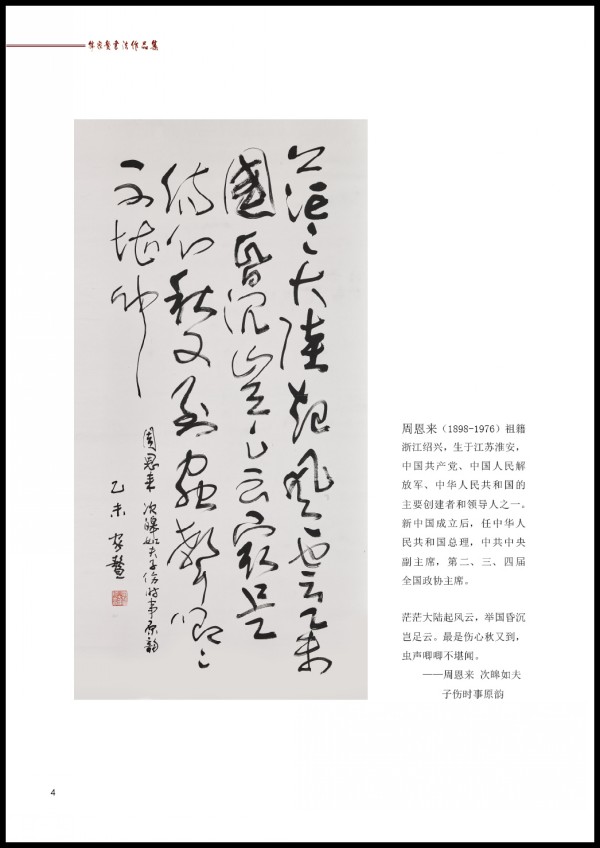 家鳌书法作品集
茫〻大陸起風雲举
國昏沉豈足云最是
傷心秋又到蟲聲唧〻
不堪聞
周恩来 次皞如夫子伤時事原韻
乙未 家鳌
周恩来（1898-1976）祖籍
浙江绍兴，生于江苏淮安，
中国共产党、中国人民解
放军、中华人民共和国的
主要创建者和领导人之一。
新中国成立后，任中华人
民共和国总理，中共中央
副主席，第二、三、四届
全国政协主席。
茫茫大陆起风云，举国昏沉
岂足云。最是伤心秋又到，
虫声唧唧不堪闻。
——周恩来 次皞如夫
子伤时事原韵
4